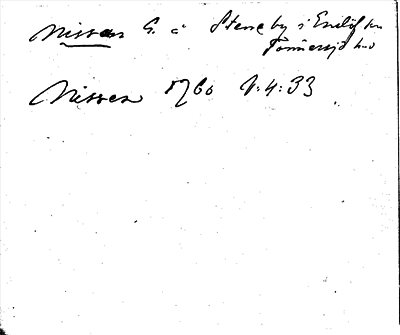 Nissan G. å Steneby i Enslöfs sn
Tönnersjö hd
Nissen 1760 V:4:33